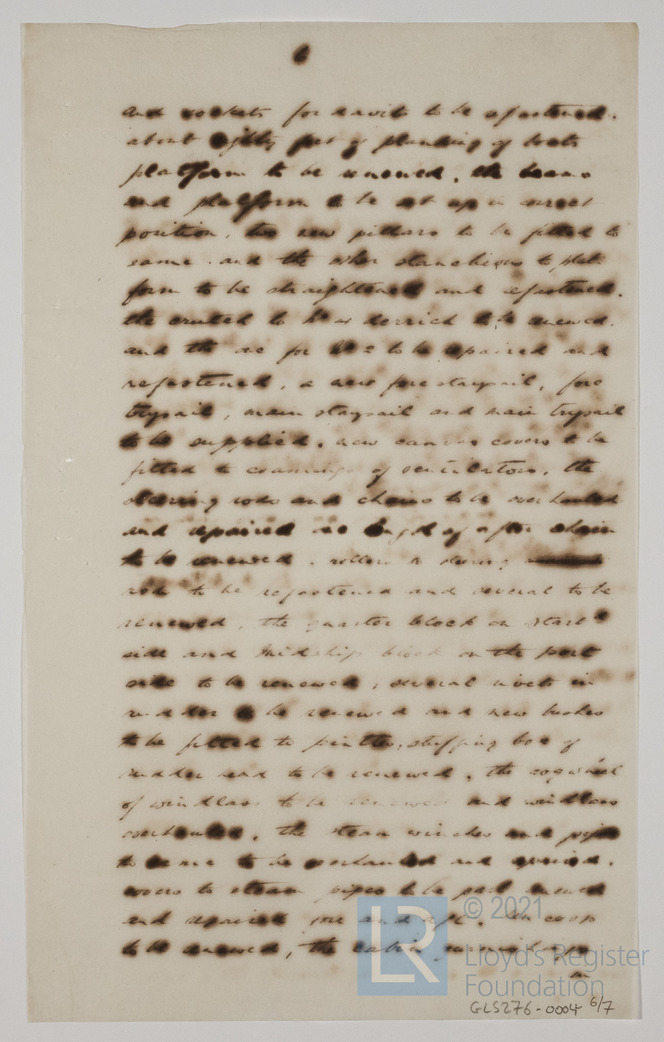 6
and sockets for davits to be refastened.
about eighty feet of planking of boats
platform to be renewed, the beams
and platform to be set up in correct
position, two new pillars to be fitted to
same and the other stanchions to plat
form to be straightened and refastened.
the to derrick to be renewed.
and the for to be repaired and
refastened, a new fore staysail, fore
trysail, main staysail and main trysail
to be supplied, new canvas covers to be
fitted to coamings of ventilators, the
steering rods and chains to be overhauled
and repaired length of after chain
to be renewed. rollers to steering
rods to be refastened and several to be
renewed, the quarter block on starb
side and midship block on the port
side to be renewed, several rivets in
rudder to be renewed and new bushes
to be fitted to pintles, stuffing box of
rudder to be renewed, the cogwheel
of windlass to be renewed and windlass
overhauled, the steam winches and pipes
to same to be overhauled and repaired.
covers to steam pipes to be part renewed
and repaired fore and aft. coop
to be renewed, the cabin
© 2021
LR
Lloyd's Register
Foundation
GLS276-0004 6/7